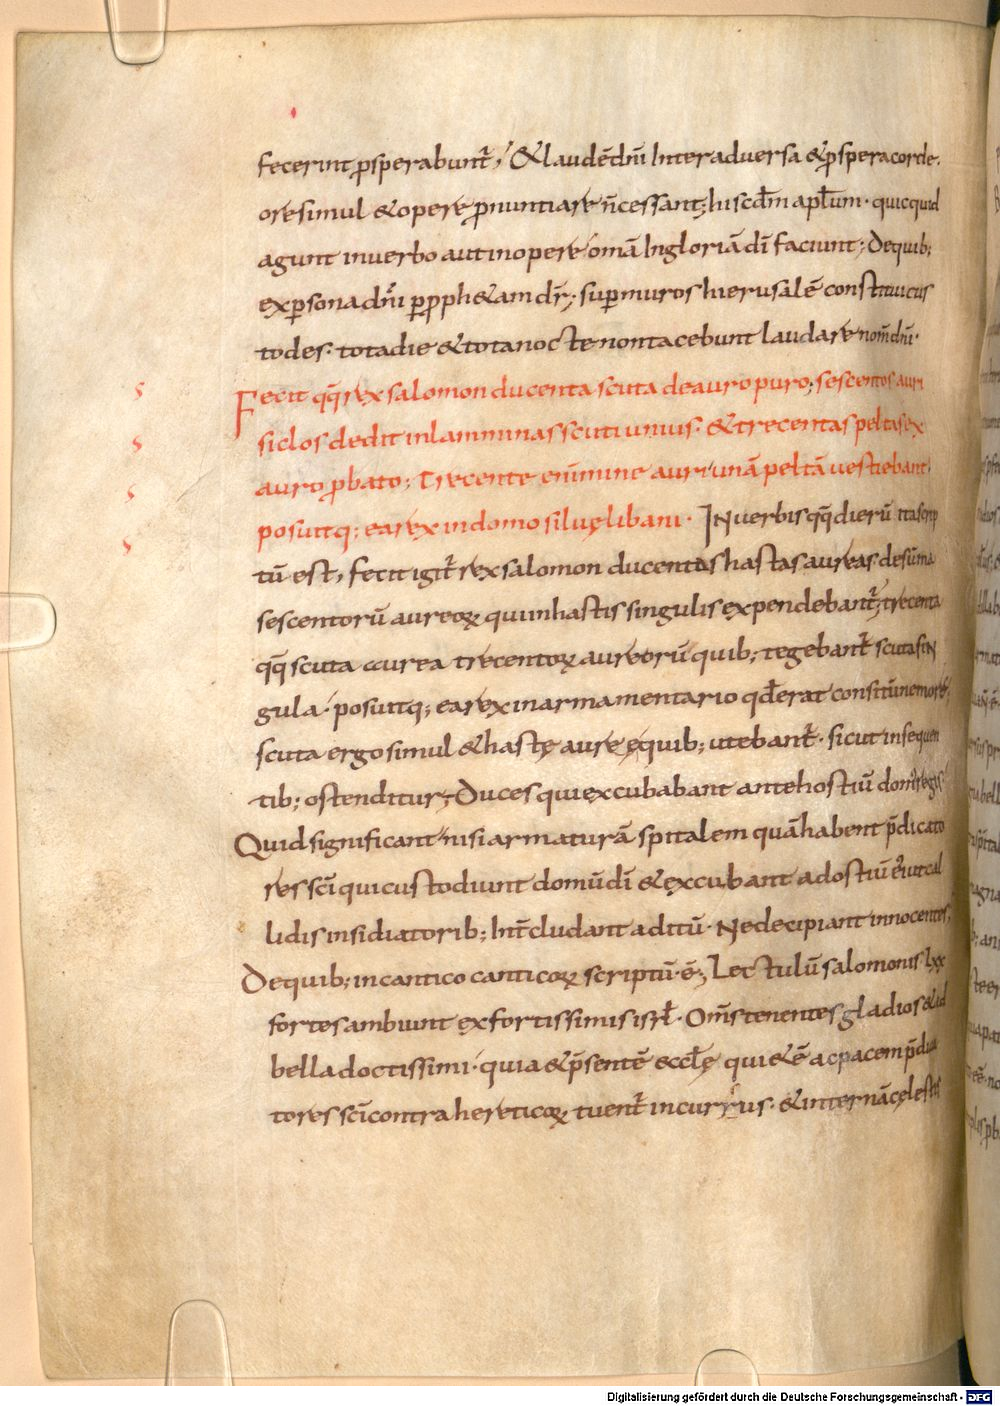 fecerint ꝓsperabunt᷒, &laudē dn̄i Inter aduersa &ꝓspera corde.
ore simul &opere ꝓnuntiare n̄cessant; hi scd̄m apl̄um · quicquid
agunt inuerbo aut inopere omā Ingloriā dī faciunt; Dequib;
exꝑsona dn̄i ꝑꝓph&am dr̄; suꝑ muros hierusalē constitui cus
todes · tota die &tota nocte non tacebunt laudare nom̄ dn̄i ·
Fecit qq̄ rex salomon ducenta scuta de auro puro; sescentos auri
siclos dedit inlamminas scuti unius · &trecentas peltas ex
auro ꝓbato; Trecente enī mine auri unā peltā uestiebant
posuitq; ea rex indomo siluę libani · IN uerbis qq̄ dierū ita scrip
tū est, fecit igit᷒ rex salomon ducentas hastas aureas desūma
sescentorū aureoꝝ qui inhastis singulis expendebant᷒; trecenta
qq̄ scuta aurea trecentoꝝ aureorū quib; tegebant᷒ scuta sin
gula · posuitq; ea rex in armamentario qđ erat consitū nemore;
scuta ergo simul &hastę aureę quib; utebant᷒ · sicut in sequen
tib; ostenditur, Duces qui excubabant ante hostiū dom᷒ regis
Quid significant nisi armaturā spitalem quā habent p̄dicato
res scī qui custodiunt domū dī &excubant ad ostiū ei᷒ ut cal
lidis insidiatorib; Int᷒cludant aditū · Ne decipiant innocentes;
Dequib; incantico canticoꝝ scriptū · ē; Lectulū salomonis · lxx
fortes ambiunt ex fortissimis isrł · Om̄s tenentes gladios &ad
bella doctissimi · quia &p̄sentē eccl̄ę quietē ac pacem p̄dica
tores scī contra hereticoꝝ tuent᷒ incursus · &internā cęlestis
Digitalisierung gefördert durch die Deutsche Forschungsgemeinschaft - DFG